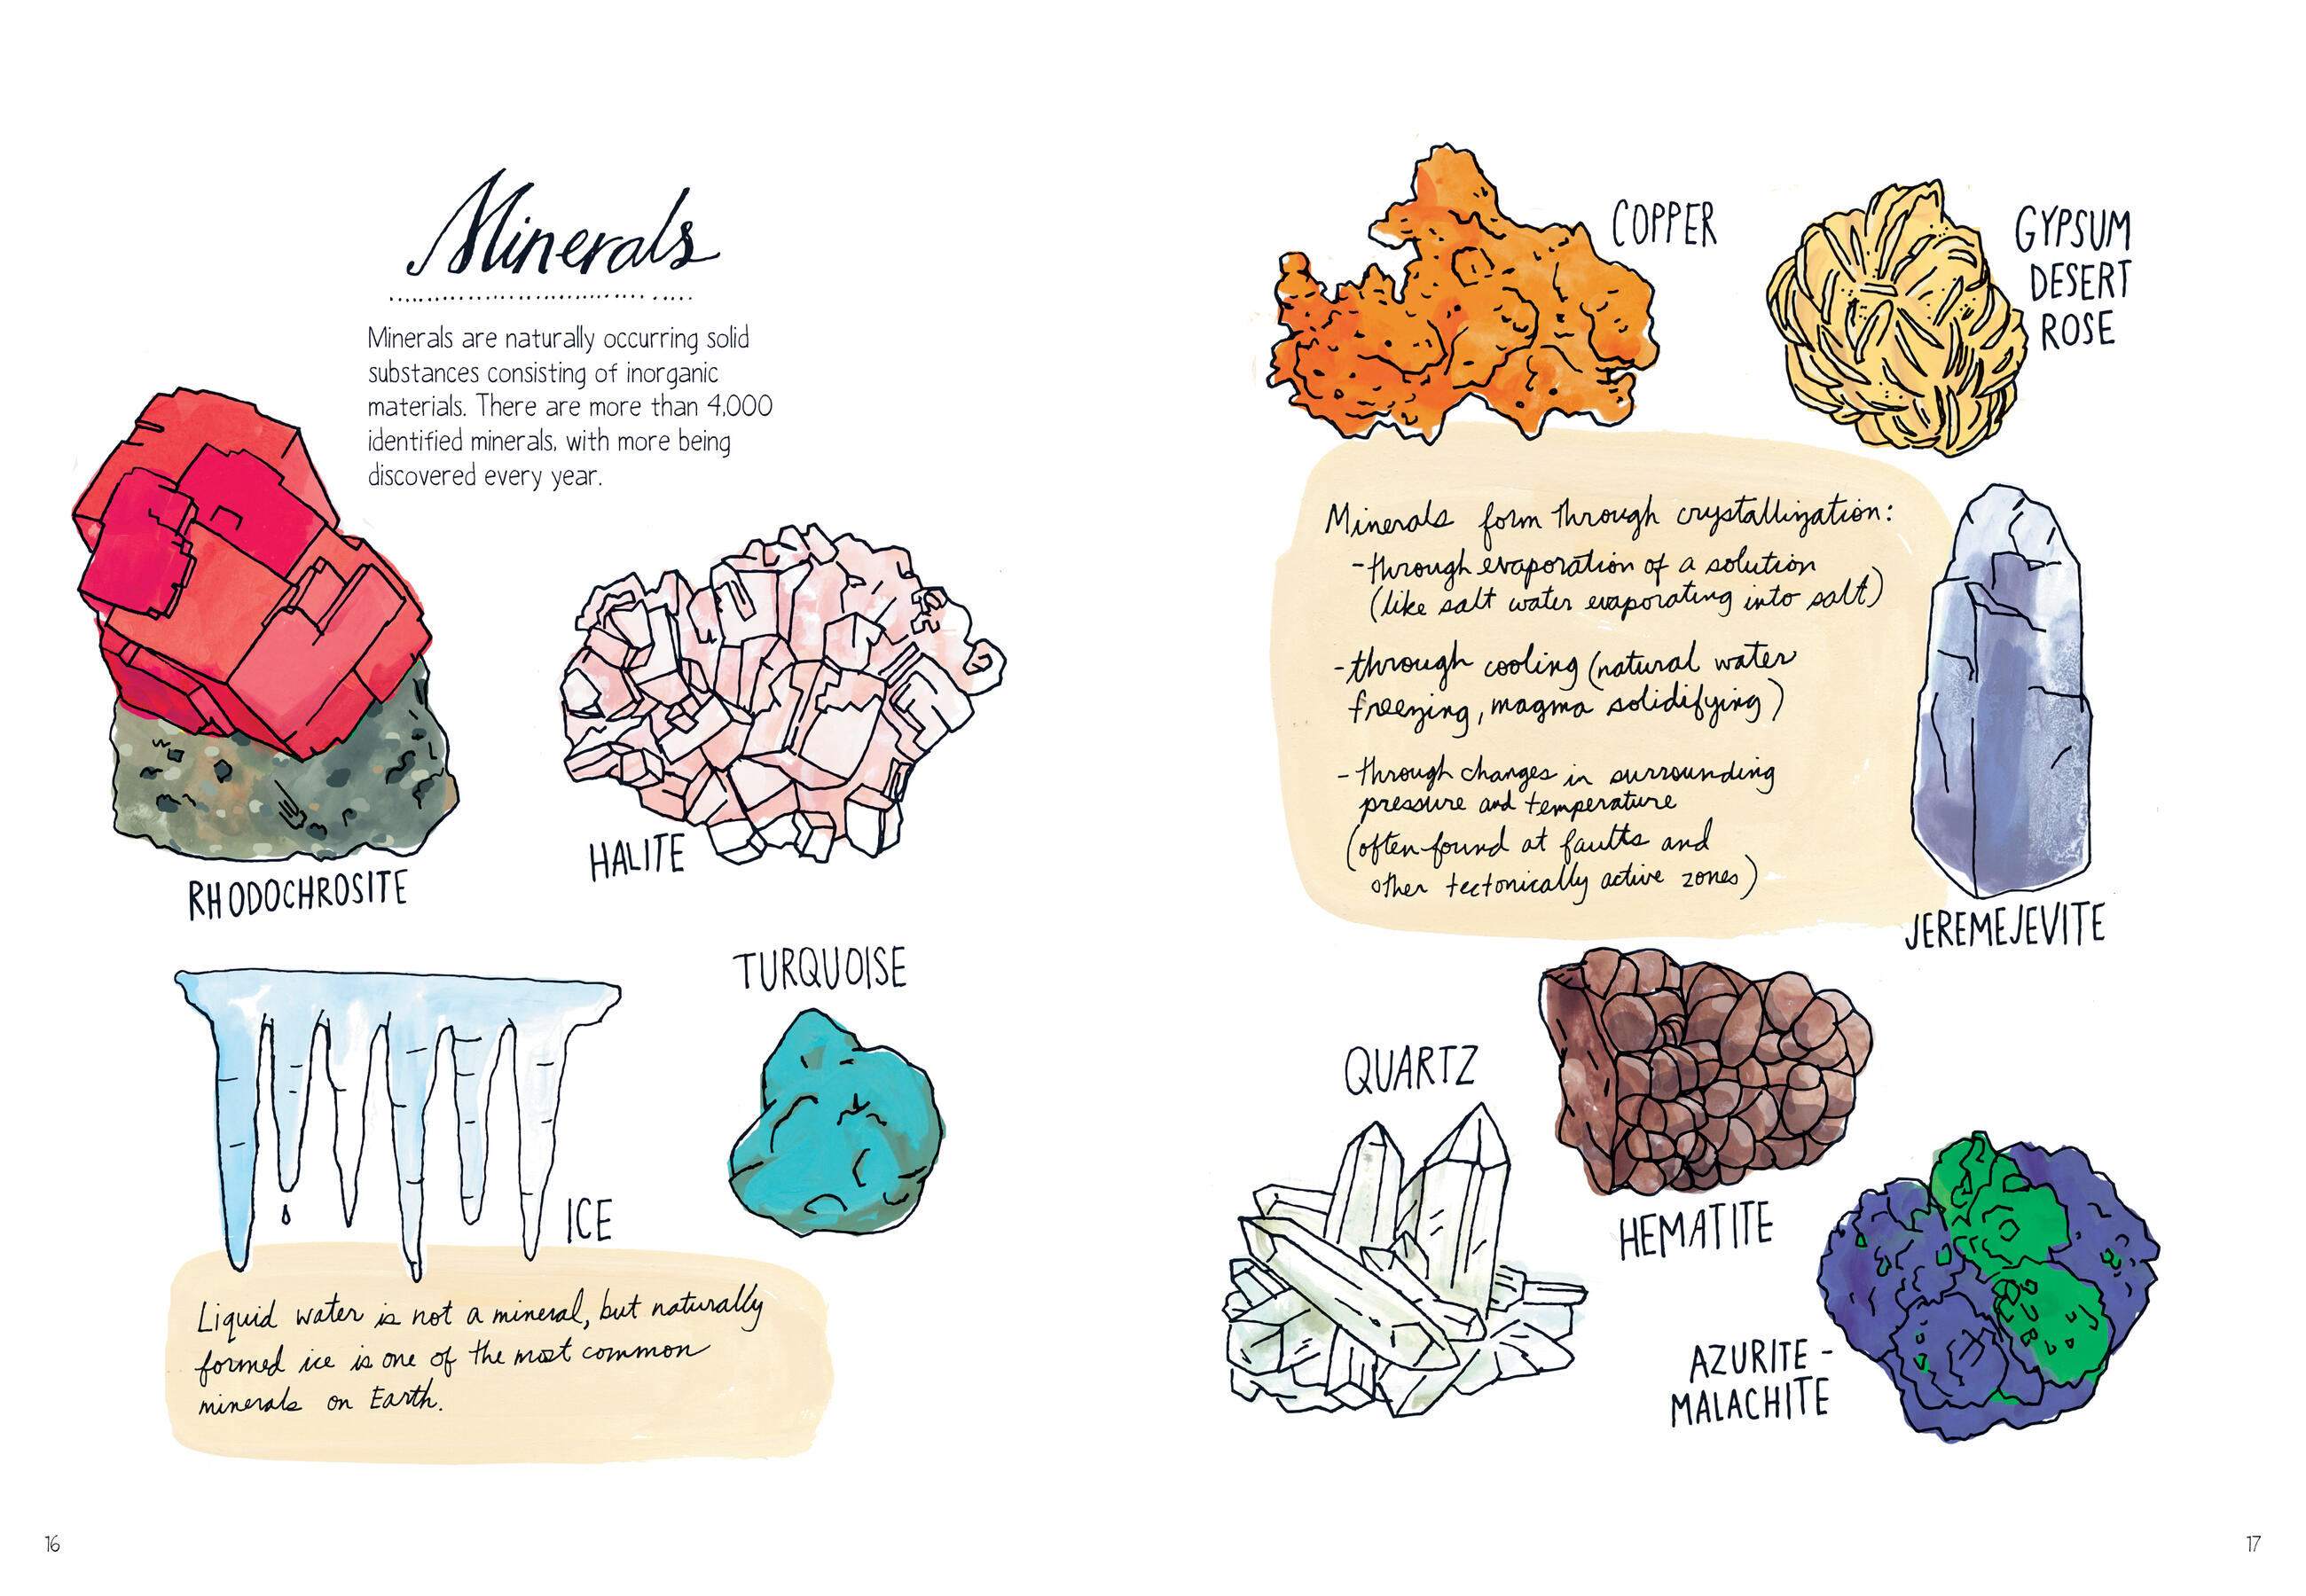 Minerals
Minerals are naturally occurring solid
substances consisting of inorganic
materials. There are more than 4,000
identified minerals, with more being
discovered every year.
RHODOCHROSITE
HALITE
TURQUOISE
ICE
Liquid water is not a mineral, but naturally
formed ice is one of the most common
minerals on Earth.
16
COPPER
GYPSUM
DESERT
ROSE
Minerals form through crystallization:
-through evaporation of a solution
(like salt water evaporating into salt)
-through cooling (natural water
freezing, magma solidifying)
-through changes in surrounding
pressure and temperature
(often found at faults and
other tectonically active zones)
JEREMEJEVITE
QUARTZ
HEMATITE
AZURITE -
MALACHITE
17